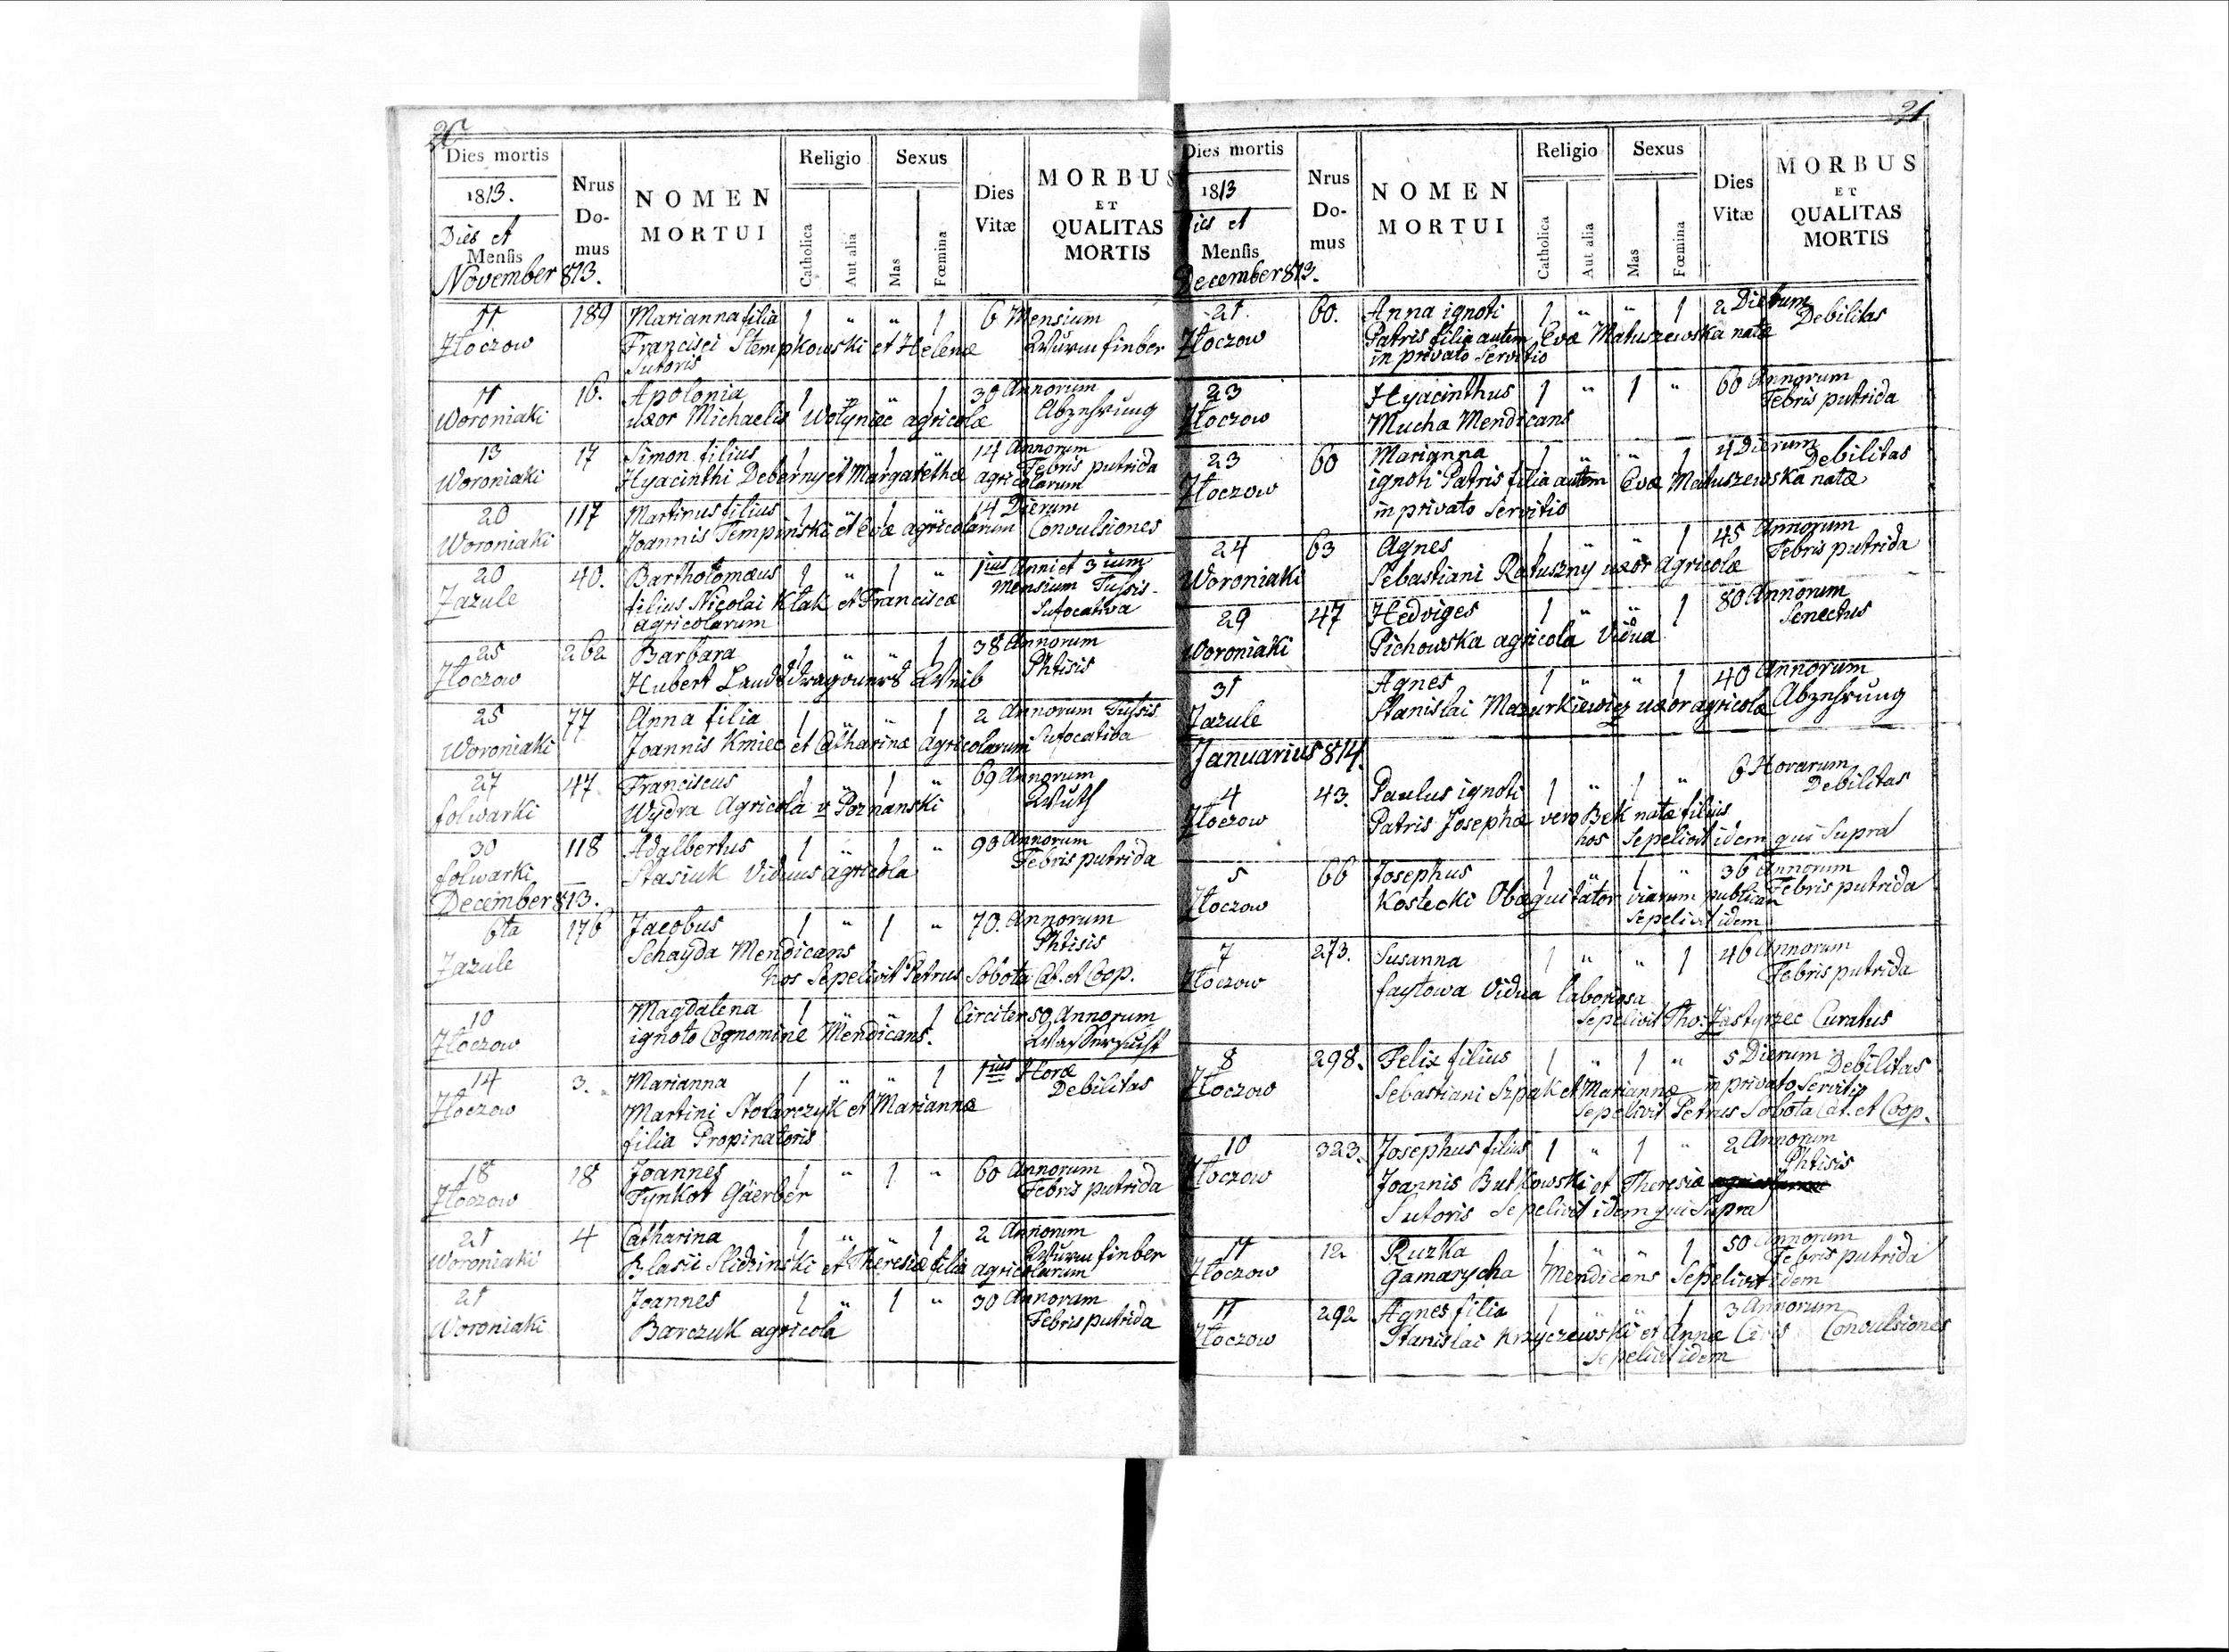 20
Dies mortis
1813.
Dies et
Mensis
November 813.
Nrus
Do-
mus
NOMEN
MORTUI
Religio
Catholica
Aut alia
Sexus
Mas
Fœmina
Dies
Vitæ
MORBUS
ET
QUALITAS
MORTIS
11 189 Marianna filia 1 " " 1 6 Mensium
Złoczow Francisci Stempkowski et Helenæ Wurmfieber
Sutoris
11 16. Apolonia 1 " " 1 30 Annorum
Woroniaki uxor Michaelis Wołyniec agricolæ Abzehrung
13 17 Simon filius 1 " 1 " 14 Annorum
Woroniaki Hyacinthi Deberny et Margarethæ agricolarum Febris putrida
20 117 Martinus filius 1 " 1 " 14 Dierum
Woroniaki Joannis Tempinski et Evæ agricolarum Convulsiones
20 40. Bartholomæus 1 " 1 " 1ius Anni et 3ium
Zazule filius Nicolai Kłak et Franciscæ Mensium Tussis
agricolarum Sufocativa
25 262 Barbara 1 " " 1 38 Annorum
Złoczow Hubert Landsdragouners Weib Phtisis
25 77 Anna filia 1 " " 1 2 Annorum Tussis
Woroniaki Joannis Kmiec et Catharinæ agricolarum Sufocativa
27 47 Franciscus 1 " 1 " 69 Annorum
folwarki Wydra Agricola v Poznanski Wuth
30 118 Adalbertus 1 " 1 " 90 Annorum
folwarki Stasiuk Viduus agricola Febris putrida
December 813.
6ta 176 Jacobus 1 " 1 " 70. Annorum
Zazule Schayda Mendicans Phtisis
hos Sepelivit Petrus Sobota Cat. et Coop.
10 Magdalena 1 " " 1 Circiter 50 Annorum
Złoczow ignoto Cognomine Mendicans. Wassersucht
14 3. Marianna 1 " " 1 1ius Horæ
Złoczow Martini Stolarczyk et Mariannæ Debilitas
filia Propinatoris
18 18 Joannes 1 " 1 " 60 Annorum
Złoczow Tynkot Gäerber Febris putrida
21 4 Catharina 1 " " 1 2 Annorum
Woroniaki Blasii Slidzinski et Theresiæ filia agricolarum Wurmfieber
21 Joannes 1 " 1 " 30 Annorum
Woroniaki Barczuk agricola Febris putrida
21
Dies mortis
1813
Dies et
Mensis
December 813.
Nrus
Do-
mus
NOMEN
MORTUI
Religio
Catholica
Aut alia
Sexus
Mas
Fœmina
Dies
Vitæ
MORBUS
ET
QUALITAS
MORTIS
21 60. Anna ignoti 1 " " 1 2 Dierum
Złoczow Patris filia autem Evæ Matuszewska natæ Debilitas
in privato Servitio
23 Hyacinthus 1 " 1 " 66 Annorum
Złoczow Mucha Mendicans Febris putrida
23 60 Marianna 1 " " 1 4 Dierum
Złoczow ignoti Patris filia autem Evæ Matuszewska natæ Debilitas
in privato Servitio
24 63 Agnes 1 " " 1 45 Annorum
Woroniaki Sebastiani Ratuszny uxor Agricolæ Febris putrida
29 47 Hedviges 1 " " 1 80 Annorum
Woroniaki Pichowska agricola Vidua Senectus
31 Agnes 1 " " 1 40 Annorum
Zazule Stanislai Mazurkiewicz uxor agricolæ Abzehrung
Januarius 814.
4 43. Paulus ignoti 1 " 1 " 6 Horarum
Złoczow Patris Josephæ vero Bek natæ filius Debilitas
hos Sepelivit idem qui Supra
5 66 Josephus 1 " 1 " 36 Annorum
Złoczow Kostecki Obequitator viarum publican Febris putrida
Sepelivit idem
7 273. Susanna 1 " " 1 46 Annorum
Złoczow faytowa Vidua laboriosa Febris putrida
Sepelivit Tho: Zastyrzec Curatus
8 298. Felix filius 1 " 1 " 5 Dierum Debilitas
Złoczow Sebastiani Szpak et Mariannæ in privato Servitio
Sepelivit Petrus Sobota Cat. et Coop.
10 323. Josephus filius 1 " 1 " 2 Annorum
Złoczow Joannis Butkowski et Theresiæ Phtisis
Sutoris Sepelivit idem qui Supra
11 12 Ruzka 1 " " 1 50 Annorum
Złoczow Gamarycha Mendicans Sepelivit idem Febris putrida
11 292 Agnes filia 1 " " 1 3 Annorum
Złoczow Stanislai Krzyczewski et Annæ Civis Convulsiones
Sepelivit idem